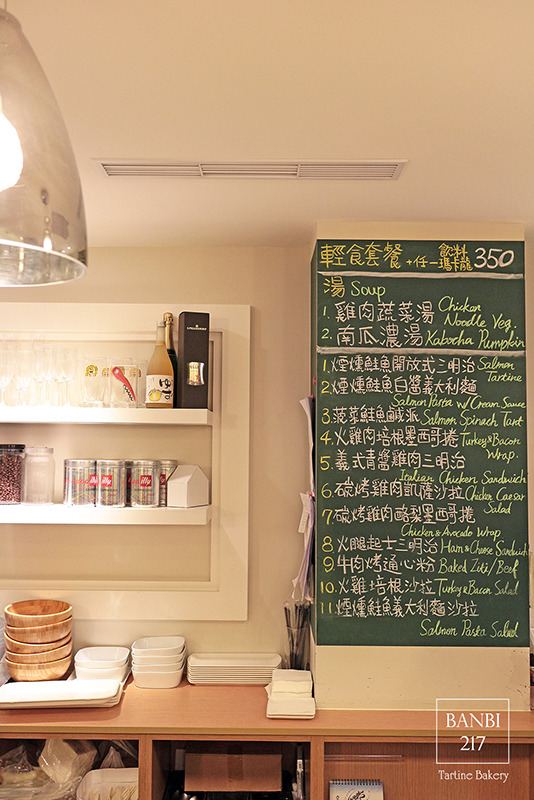 輕食套餐 +任一 飲料 瑪卡龍 350
湯 Soup
1. 雞肉蔬菜湯 Chicken Noodle Veg.
2. 南瓜濃湯 Kabocha Pumpkin
1. 煙燻鮭魚開放式三明治 Salmon Tartine
2. 煙燻鮭魚白醬義大利麵
Salmon Pasta w/ Cream Sauce
3. 菠菜鮭魚鹹派 Salmon Spinach Tart
4. 火雞肉培根墨西哥捲 Turkey & Bacon Wrap.
5. 義式青醬雞肉三明治
Italian Chicken Sandwich
6. 碳烤雞肉凱薩沙拉 Chicken Caesar Salad
7. 碳烤雞肉酪梨墨西哥捲
Chicken & Avocado Wrap
8. 火腿起士三明治 Ham & Cheese Sandwich
9. 牛肉烤通心粉 Baked Ziti/Beef
10. 火雞培根沙拉 Turkey & Bacon Salad
11. 煙燻鮭魚義大利麵沙拉
Salmon Pasta Salad
illy
illy
BANBI
217
Tartine Bakery